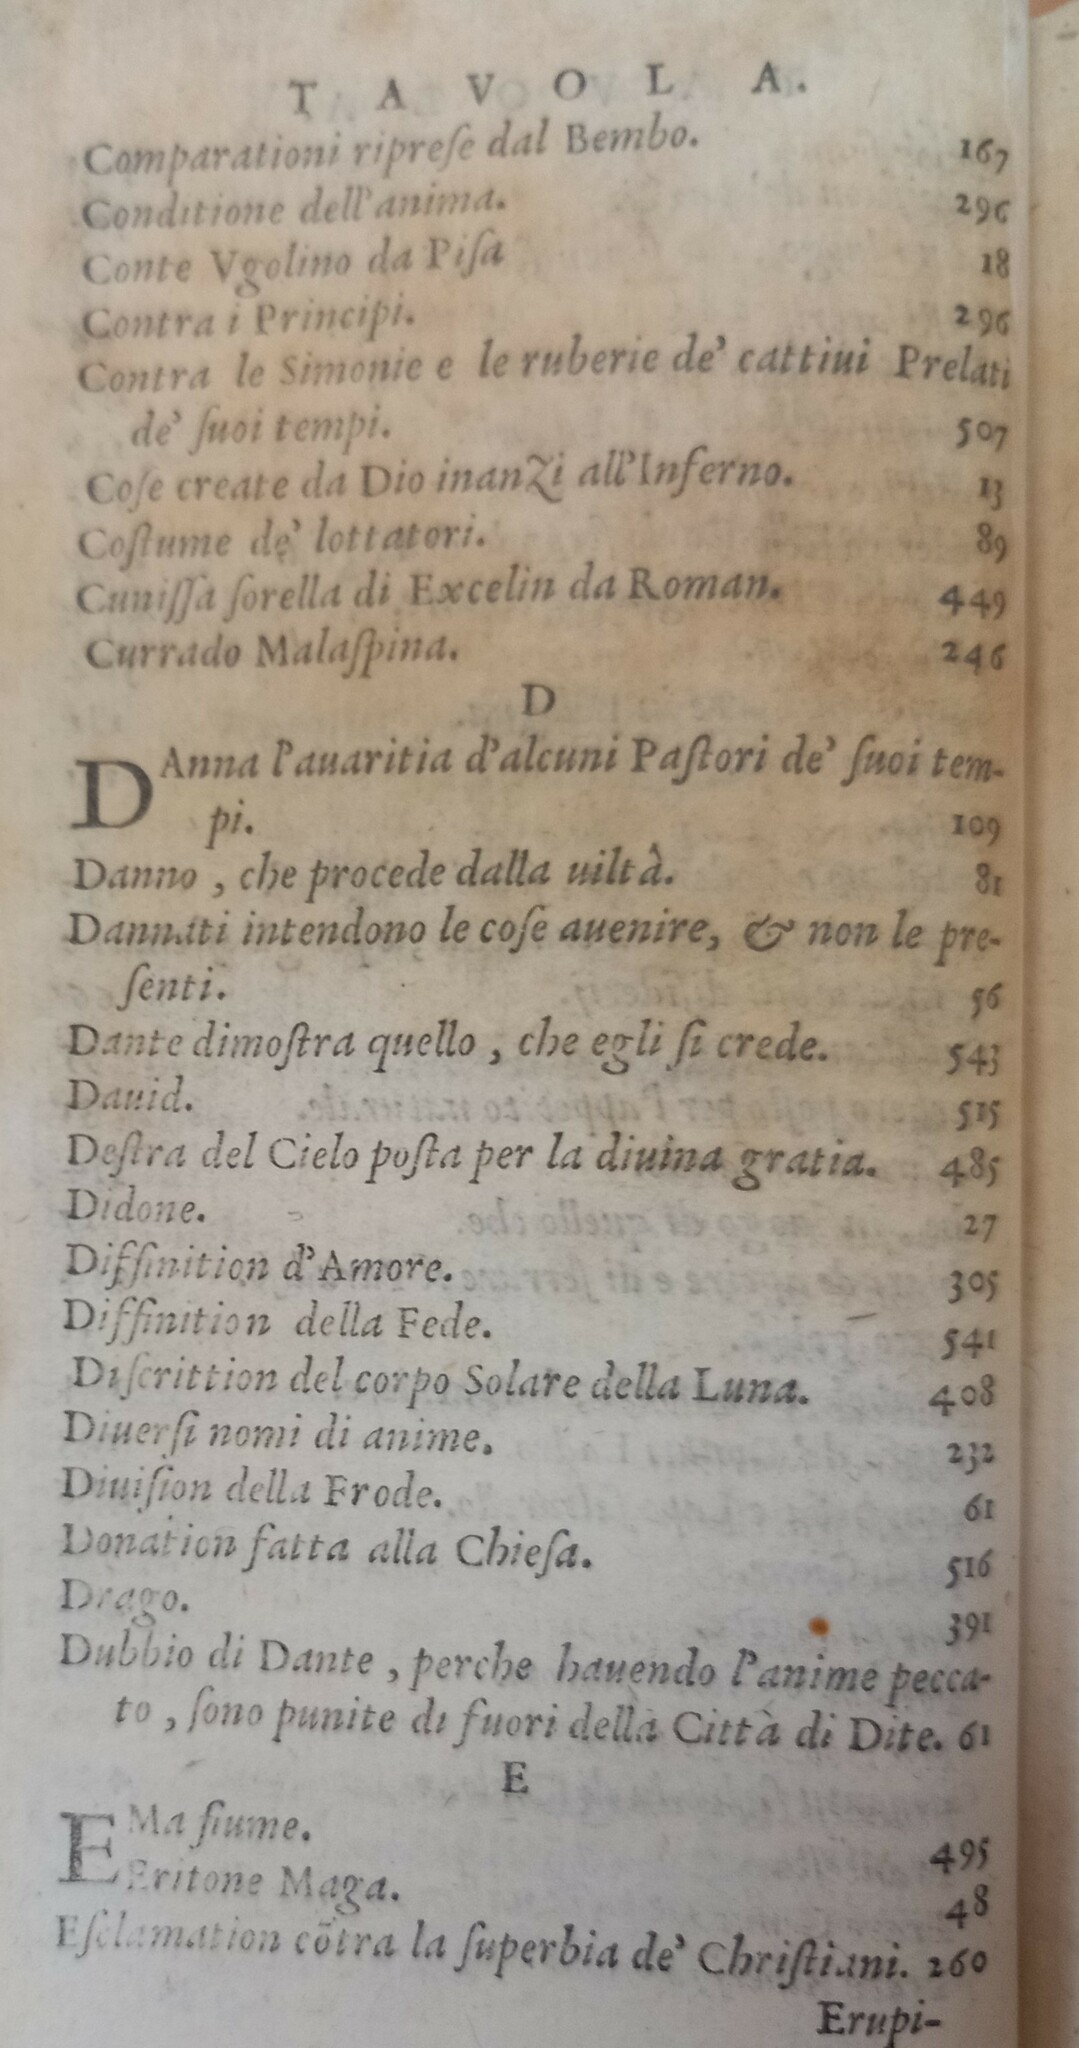 TAVOLA.
Comparationi ripreſe dal Bembo. 167
Conditione dell'anima. 296
Conte Vgolino da Piſa 18
Contra i Principi. 296
Contra le Simonie e le ruberie de' cattiui Prelati
de' ſuoi tempi. 507
Coſe create da Dio inanzi all'Inferno. 13
Coſtume de' lottatori. 89
Cuniſſa ſorella di Excelin da Roman. 449
Currado Malaſpina. 246
D
DAnna l'auaritia d'alcuni Paſtori de' ſuoi tem-
pi. 109
Danno, che procede dalla uiltà. 81
Dannati intendono le coſe auenire, & non le pre-
ſenti. 56
Dante dimoſtra quello, che egli ſi crede. 543
Dauid. 515
Deſtra del Cielo poſta per la diuina gratia. 485
Didone. 27
Diffinition d'Amore. 305
Diffinition della Fede. 541
Diſcrittion del corpo Solare della Luna. 408
Diuerſi nomi di anime. 232
Diuiſion della Frode. 61
Donation fatta alla Chieſa. 516
Drago. 391
Dubbio di Dante, perche hauendo l'anime pecca-
to, ſono punite di fuori della Città di Dite. 61
E
EMa fiume. 495
Eritone Maga. 48
Eſclamation cōtra la ſuperbia de' Chriſtiani. 260
Erupi-